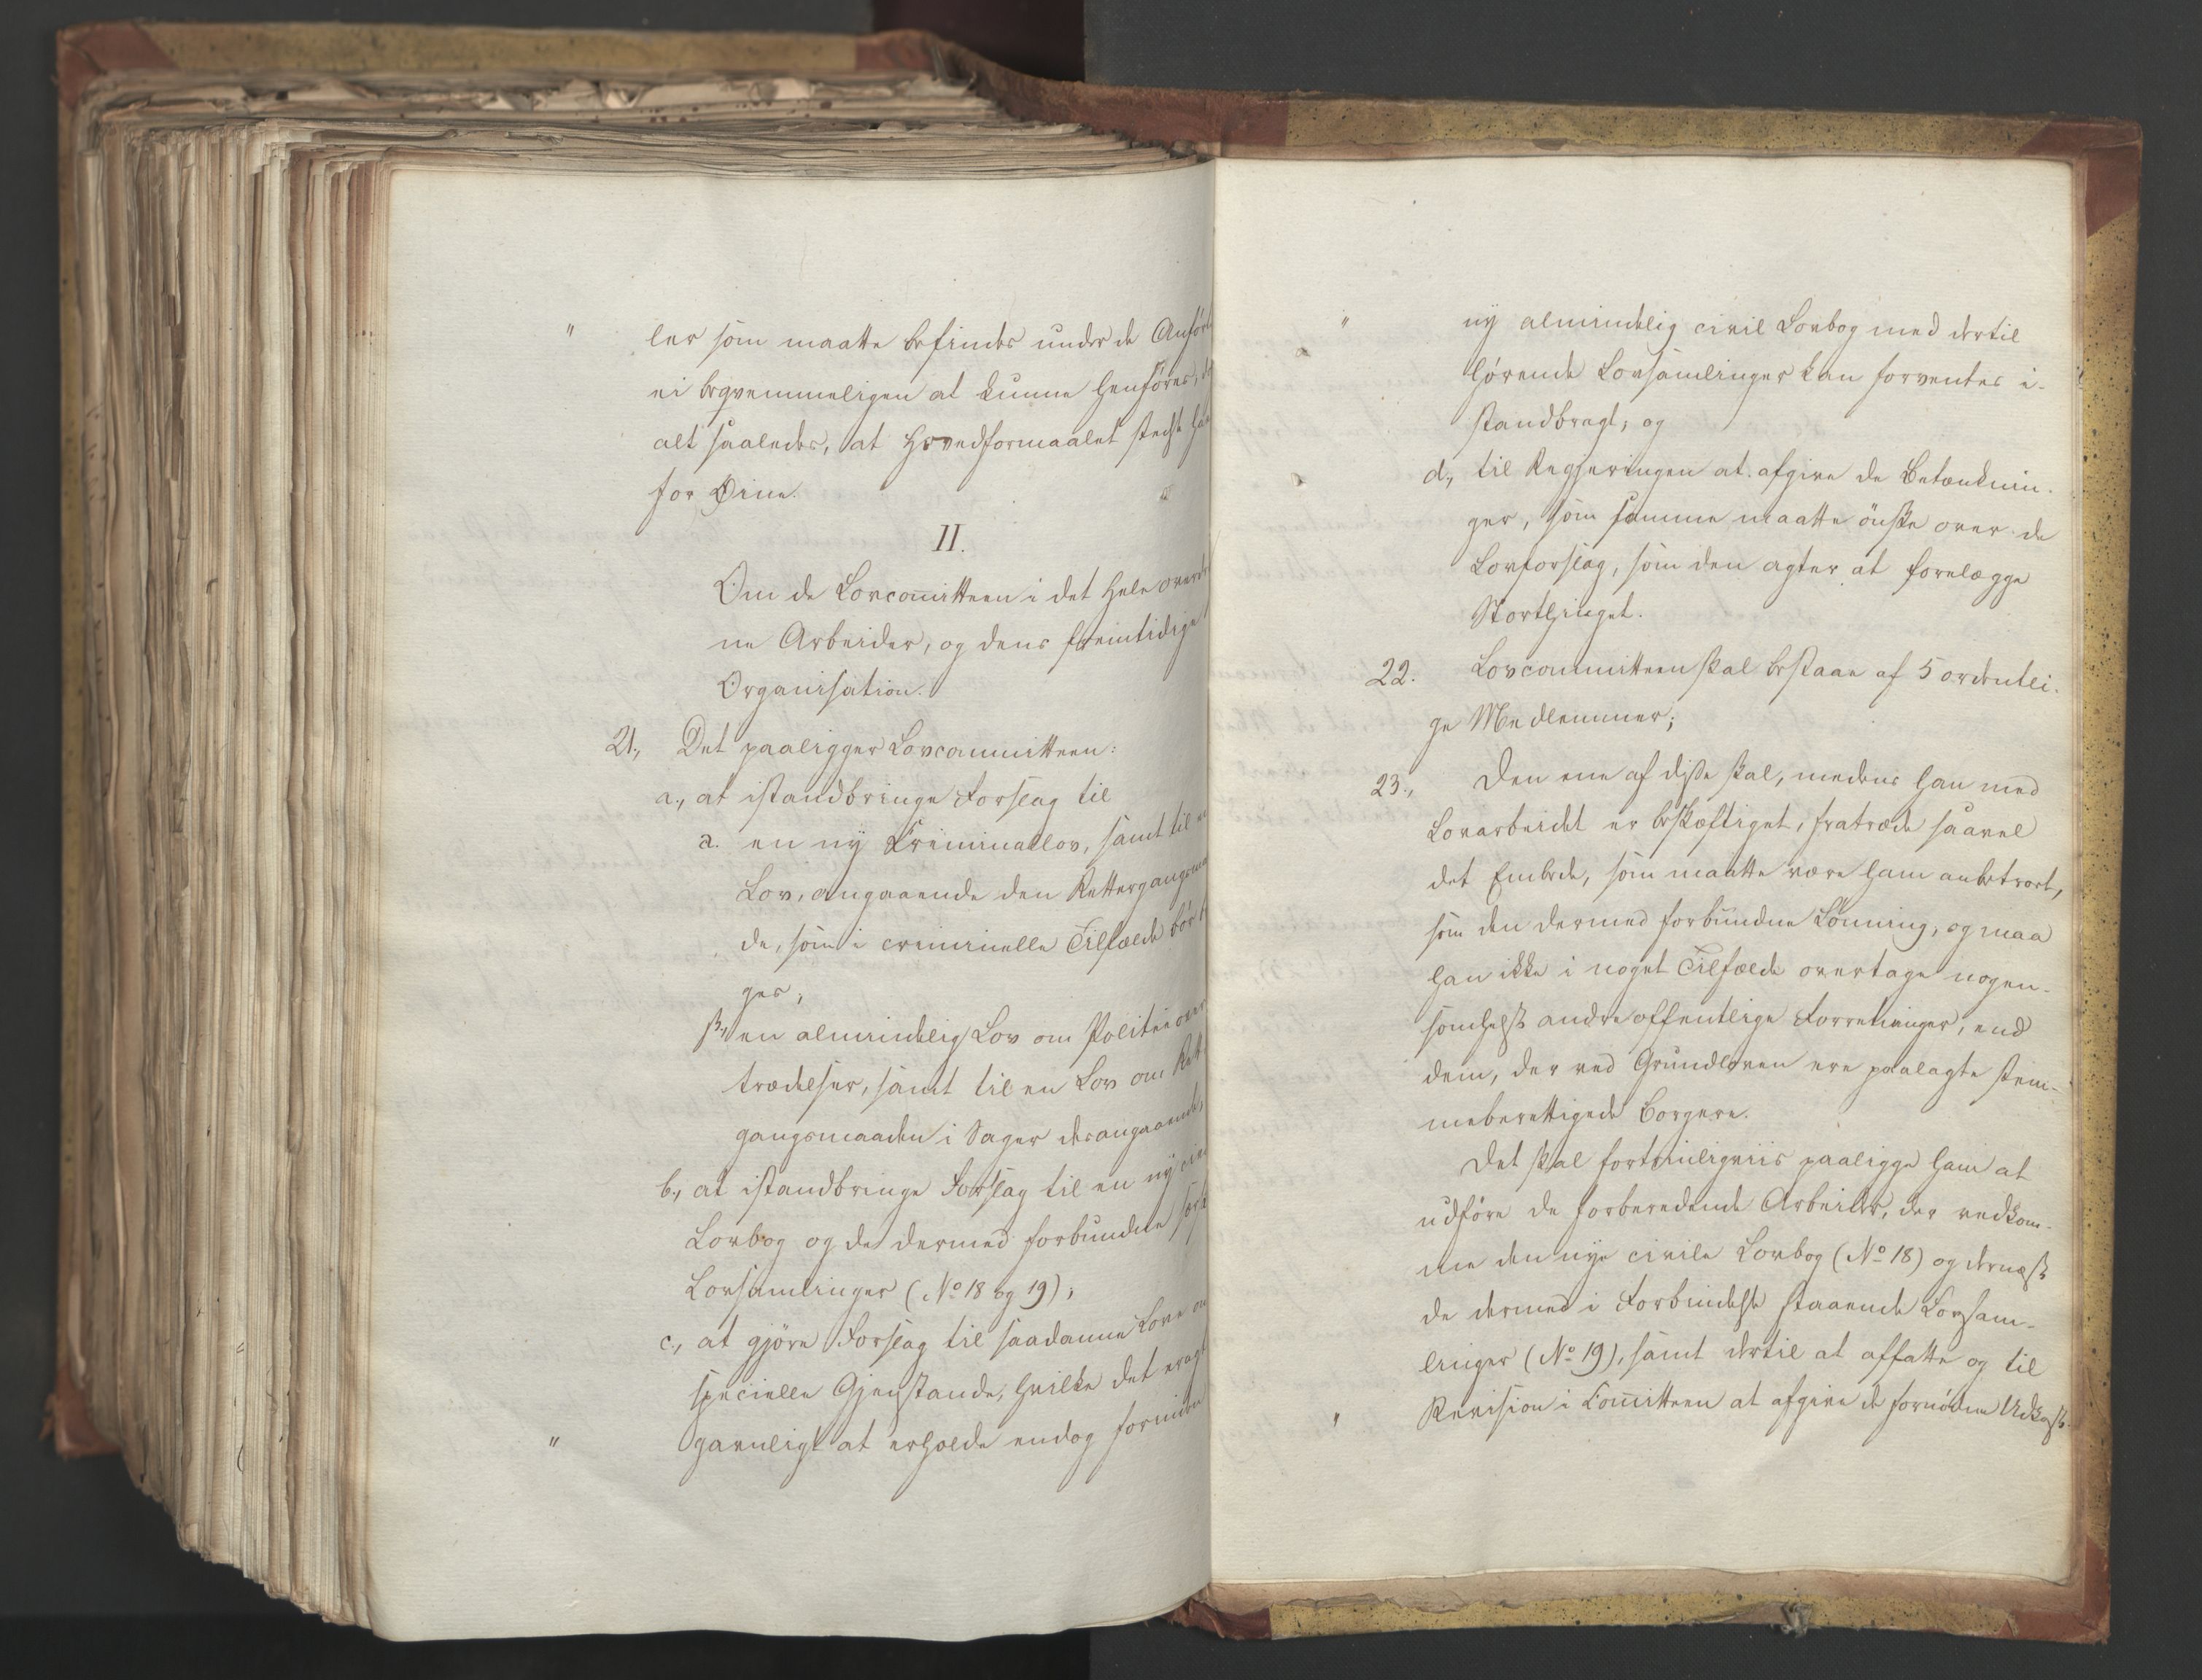 " ler som maatte befindes under de Anför
ei beqvemmeligen at kunne henføres,
alt saaledes, at Hovedformaalet stedse
for Øine.
II.
Om de Lovcomitteen i det Hele overdr
ne Arbeider, og dens fremtidige
Organisation.
21., Det paaligger Lovcommitteen:
a., at istandbringe Forslag til
a. en ny Kriminallov, samt til
Lov, angaaende den Rettergangsma
de, som i criminelle Tilfælde bör
ges;
ß., en almindelig Lov om Politieover
trædelser, samt til en Lov om Rett
gangsmaaden i Sager desangaaende;
b., at istandbringe Forslag til en ny civ
Lovbog og de dermed forbundne
Lovsamlinger (No 18 og 19);
c., at gjöre Forslag til saadanne Love om
specielle Gjenstande, hvilke det eragt
" gavnligt at erholde endog forinden
" ny almindelig civil Lovbog med dertil
hørende Lovsamlinger kan forventes i-
standbragt; og
d., til Regjeringen at afgive de Betænknin-
ger, som samme maatte önske over de
Lovforslag, som den agter at forelægge
Storthinget.
22. Lovcommitteen skal bestaae af 5 ordentli-
ge Medlemmer;
23., Den ene af disse skal, medens han med
Lovarbeidet er beskæftiget, fratræde saavel
det Embede, som maatte være ham anbetroet,
som den dermed forbundne Lönning, og maa
han ikke i noget Tilfælde overtage nogen-
somhelst andre offentlige Forretninger, end
dem, der ved Grundloven ere paalagte stem-
meberettigede Borgere.
Det skal fortrinligviis paaligge ham at
udföre de forberedende Arbeider, der vedkom-
me den nye civile Lovbog (No 18) og dernæst
de dermed i Forbindelse staaende Lovsam-
linger (No 19), samt dertil at affatte og til
" Revision i Comitteen at afgive de fornödne Udkast